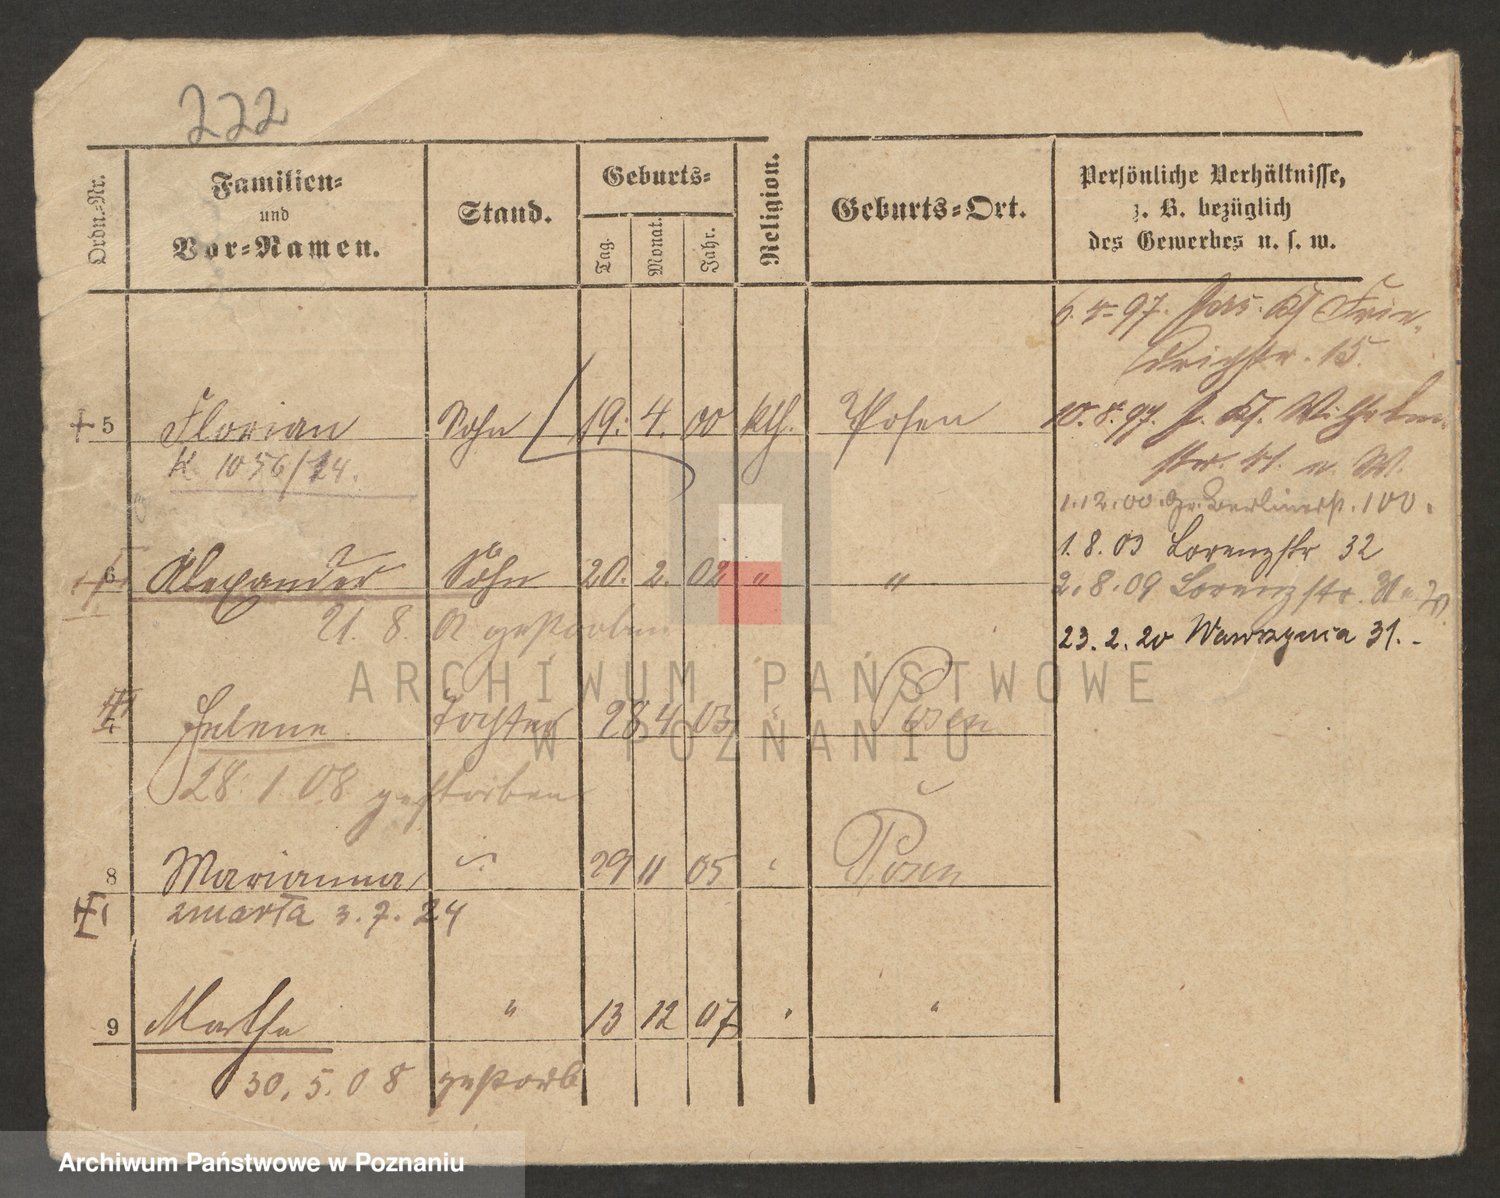 222
Ordn.-Nr.
Familien-
und
Vor-Namen.
Stand.
Geburts-
Tag.
Monat.
Jahr.
Religion.
Geburts-Ort.
Persönliche Verhältnisse,
z. B. bezüglich
des Gewerbes u. s. w.
6.5.97. Frie-
drichstr. 15.
5 Florian Sohn 19. 4. 00 kth. Posen
10.8.97. Wilhelm-
str.
K 1056/24.
1.12.00. Gr. Berlinerstr. 100.
1.8.03 Lorenzstr 32
6 Alexander Sohn 20. 2. 02 " "
2.8.09 Lorenzstr.
21. 8. 02 gestorben
23.2.20 Wawrzynca 31.-
Helene Tochter 28 4 03 " Posen
28. 1. 08 gestorben
8 Marianna " 29 11 05 " Posen
zmarła 3.7.24
9 Martha " 13 12 07 " "
30.5.08 gestorb
ARCHIWUM PAŃSTWOWE
W POZNANIU
Archiwum Państwowe w Poznaniu